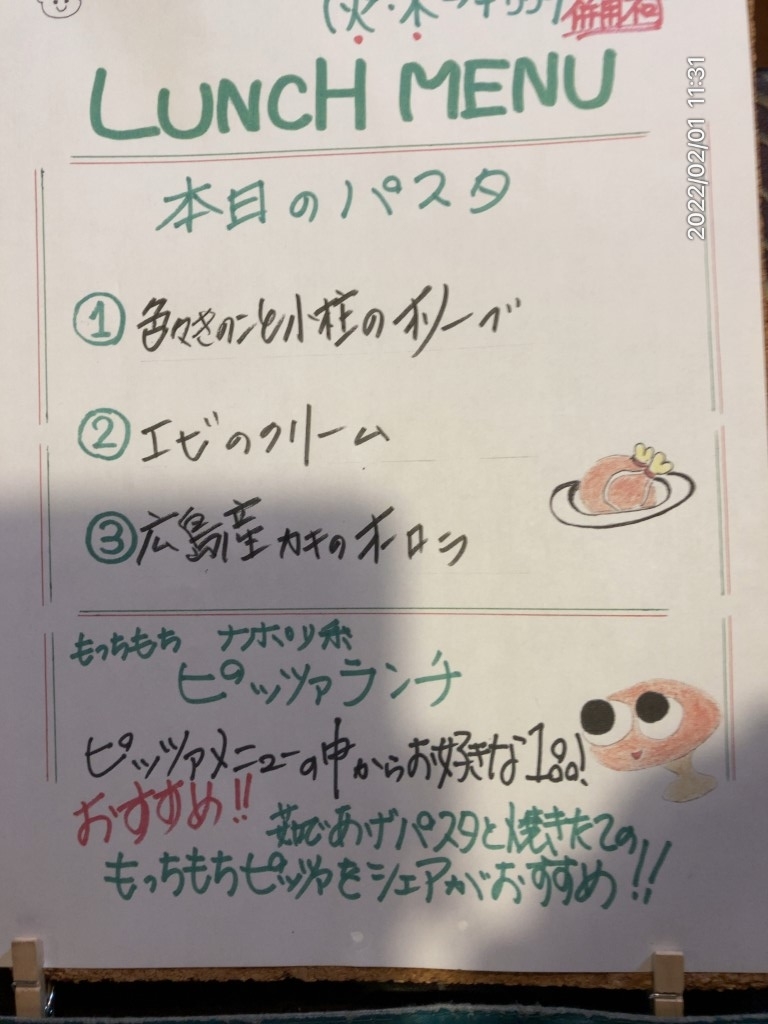 (火・木
併用不可
LUNCH MENU
2022/02/01 11:31
本日のパスタ
① 色々きのこと小柱のオリーブ
② エビのクリーム
③ 広島産カキのオーロラ
もっちもち ナポリ系
ピッツァランチ
ピッツァメニューの中からお好きな1品!
おすすめ!! 茹であげパスタと焼きたての
もっちもちピッツァをシェアがおすすめ!!